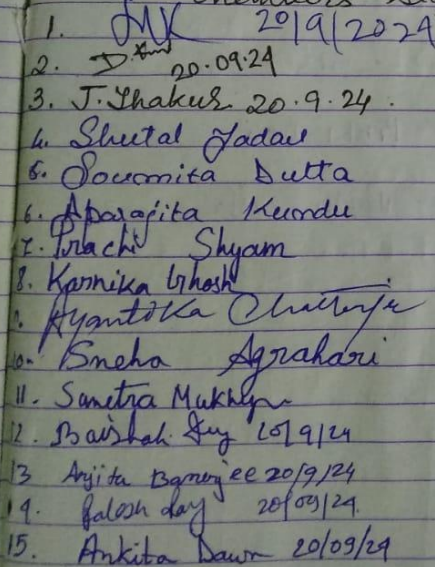 1. 20/9/2024
2. D. 20.09.24
3. J. Thakur 20.9.24.
4. Sheetal Yadav
5. Soumita Dutta
6. Aparajita Kundu
7. Prachi Shyam
8. Karnika Ghosh
9. Ayantika Chatterjee
10. Sneha Agrahari
11. Sumitra
12. Baishali 20/9/24
13 Arjita Banerjee 20/9/24
14. 20/09/24.
15. Ankita Dawn 20/09/24